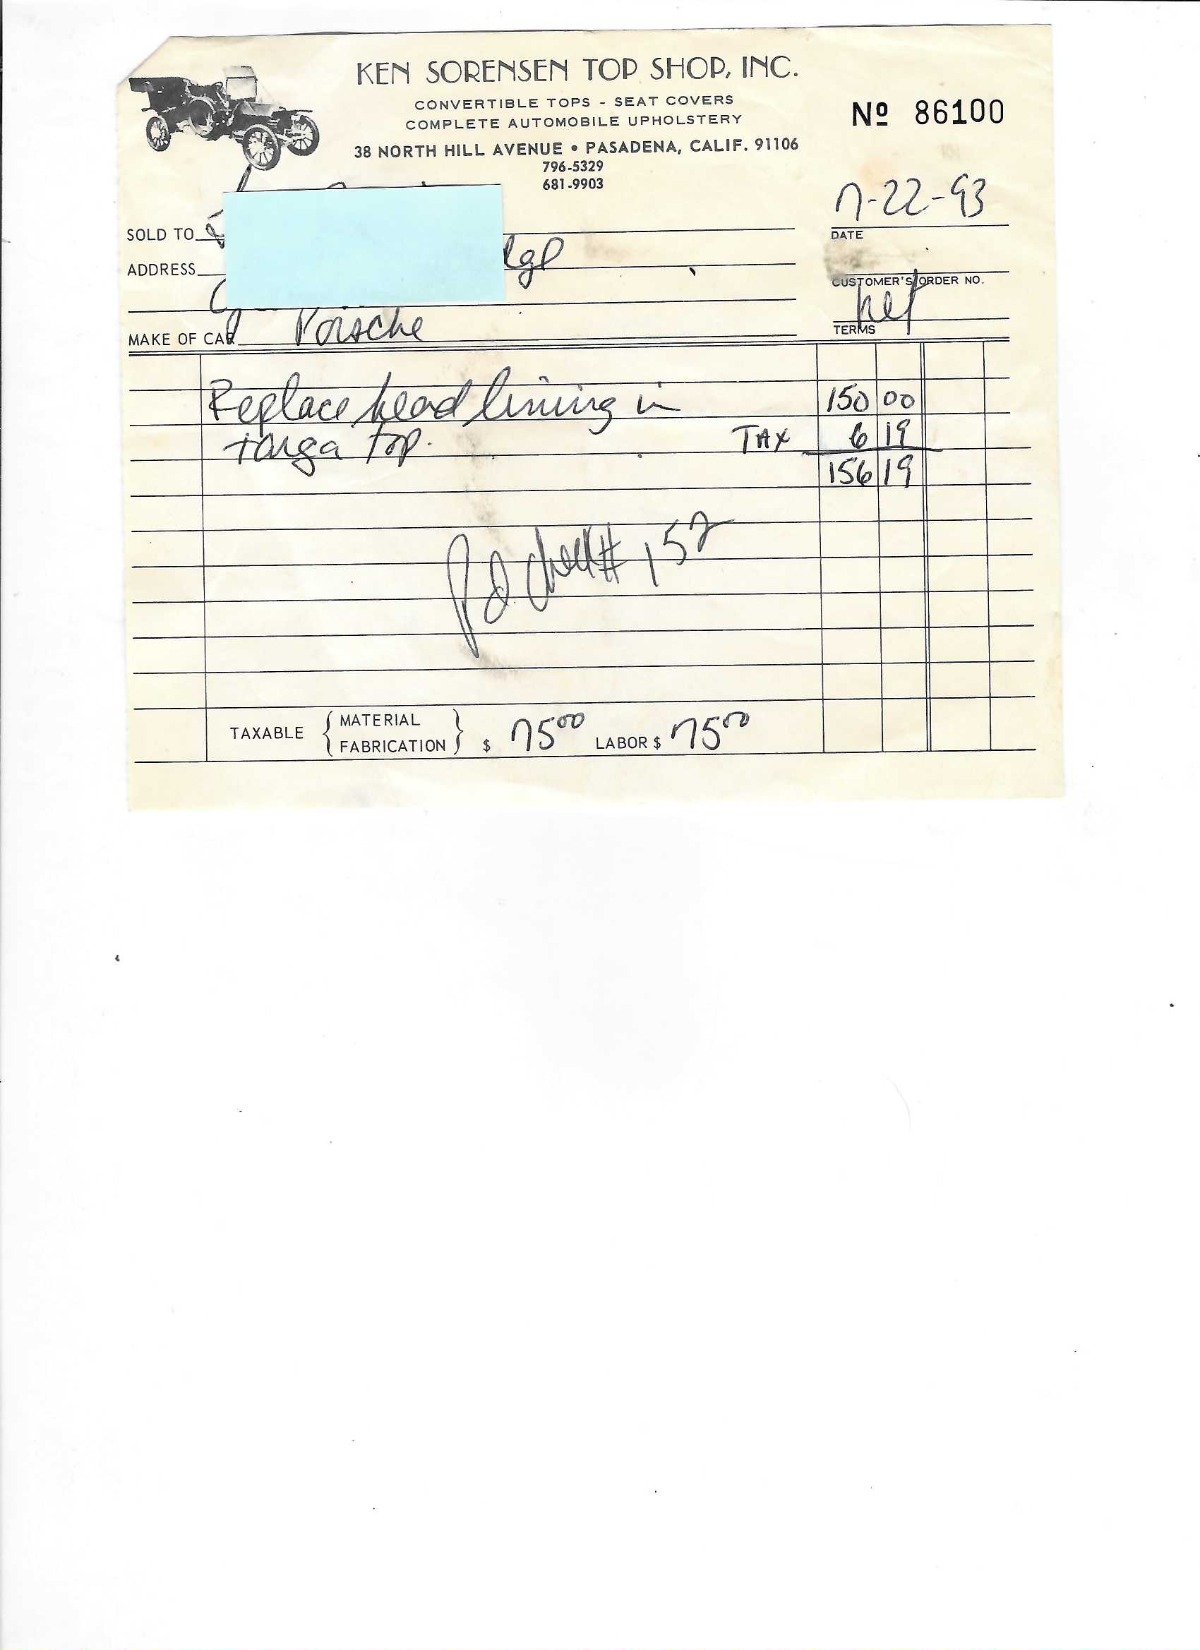 KEN SORENSEN TOP SHOP, INC.
CONVERTIBLE TOPS - SEAT COVERS
COMPLETE AUTOMOBILE UPHOLSTERY
38 NORTH HILL AVENUE • PASADENA, CALIF. 91106
796-5329
681-9903
Nº 86100
7-22-93
DATE
SOLD TO
ADDRESS
CUSTOMER'S ORDER NO.
TERMS
MAKE OF CAR Porsche
Replace head lining in 150 00
targa top. TAX 6 19
156 19
Pd check # 152
TAXABLE { MATERIAL FABRICATION } $ 75 00 LABOR $ 75 00